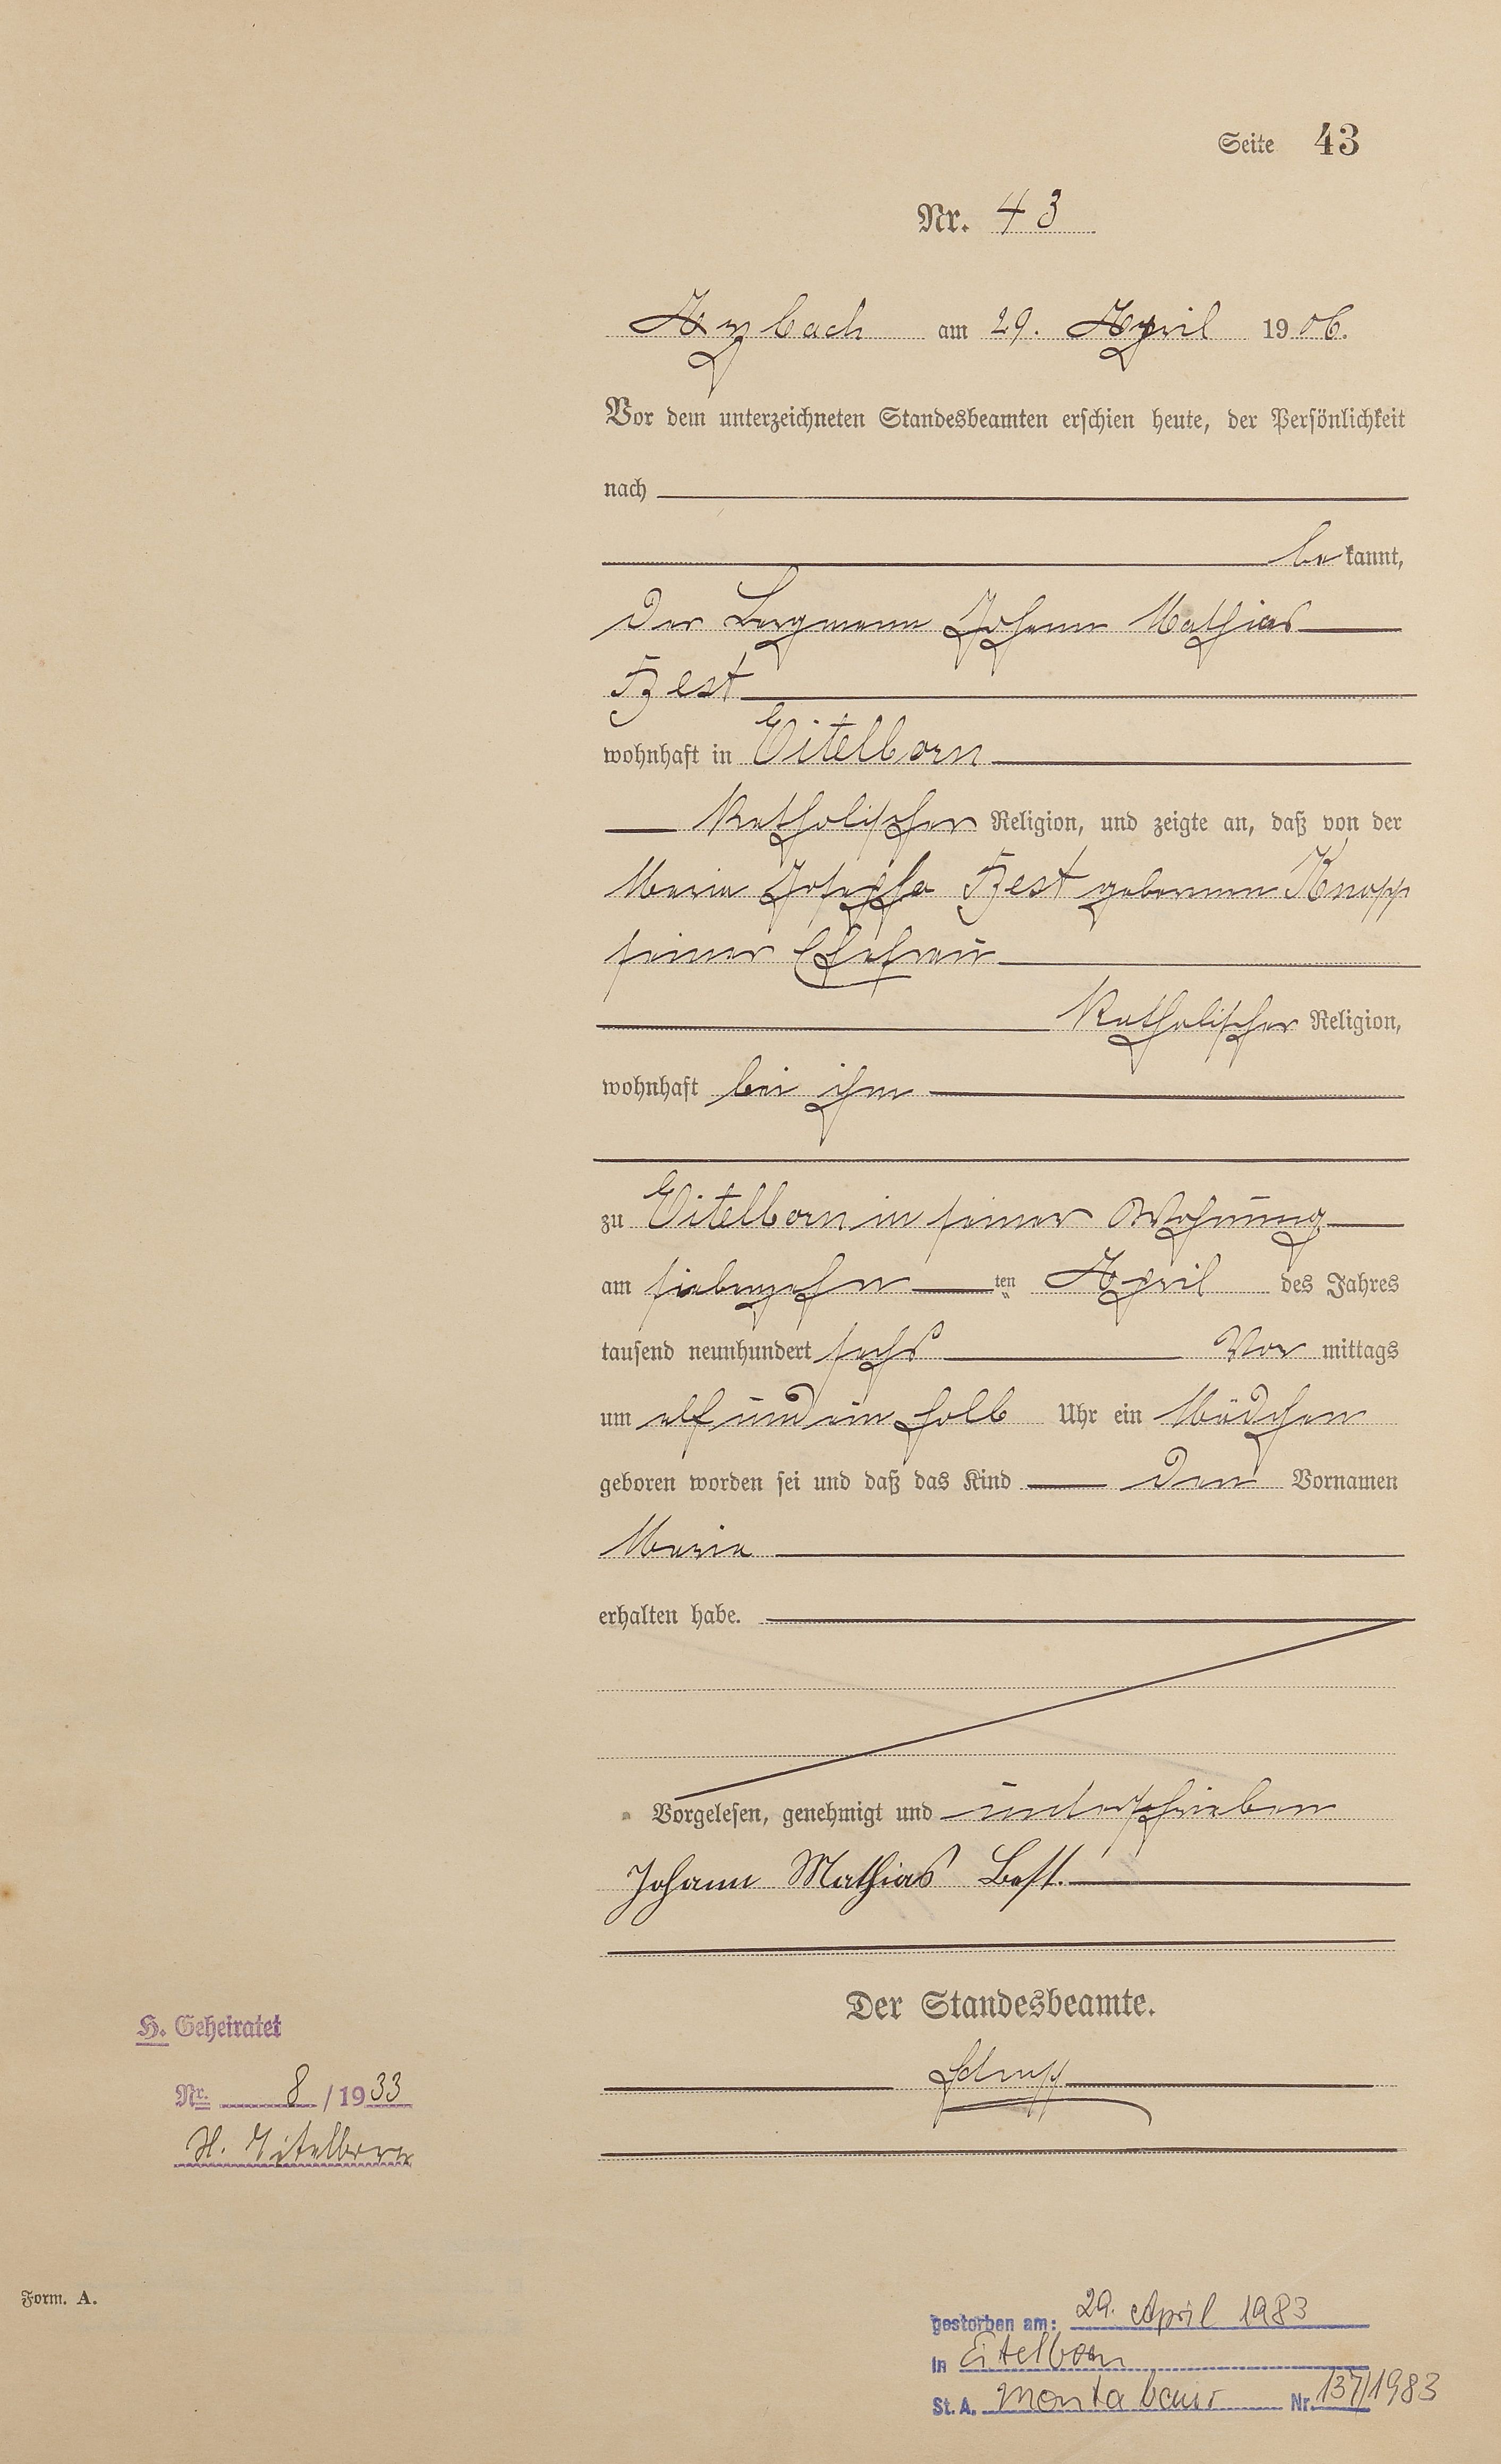 Seite 43
Nr. 43
Arzbach am 29. April 1906.
Vor dem unterzeichneten Standesbeamten erschien heute, der Persönlichkeit
nach
bekannt,
der Bergmann Johann Mathias
Best
wohnhaft in Eitelborn
katholischer Religion, und zeigte an, daß von der
Maria Josepha Best geborenen Knopp
seiner Ehefrau
katholischer Religion,
wohnhaft bei ihm
zu Eitelborn in seiner Wohnung
am siebenzehnten April des Jahres
tausend neunhundert sechs Vor mittags
um elf und ein halb Uhr ein Mädchen
geboren worden sei und daß das Kind den Vornamen
Maria
erhalten habe.
Vorgelesen, genehmigt und unterschrieben
Johann Mathias Best.
Der Standesbeamte.
H. Geheiratet
Nr. 8/1933
St. Eitelborn
Form. A.
gestorben am: 29. April 1983
in Eitelborn
St. A. Montabaur Nr. 137/1983